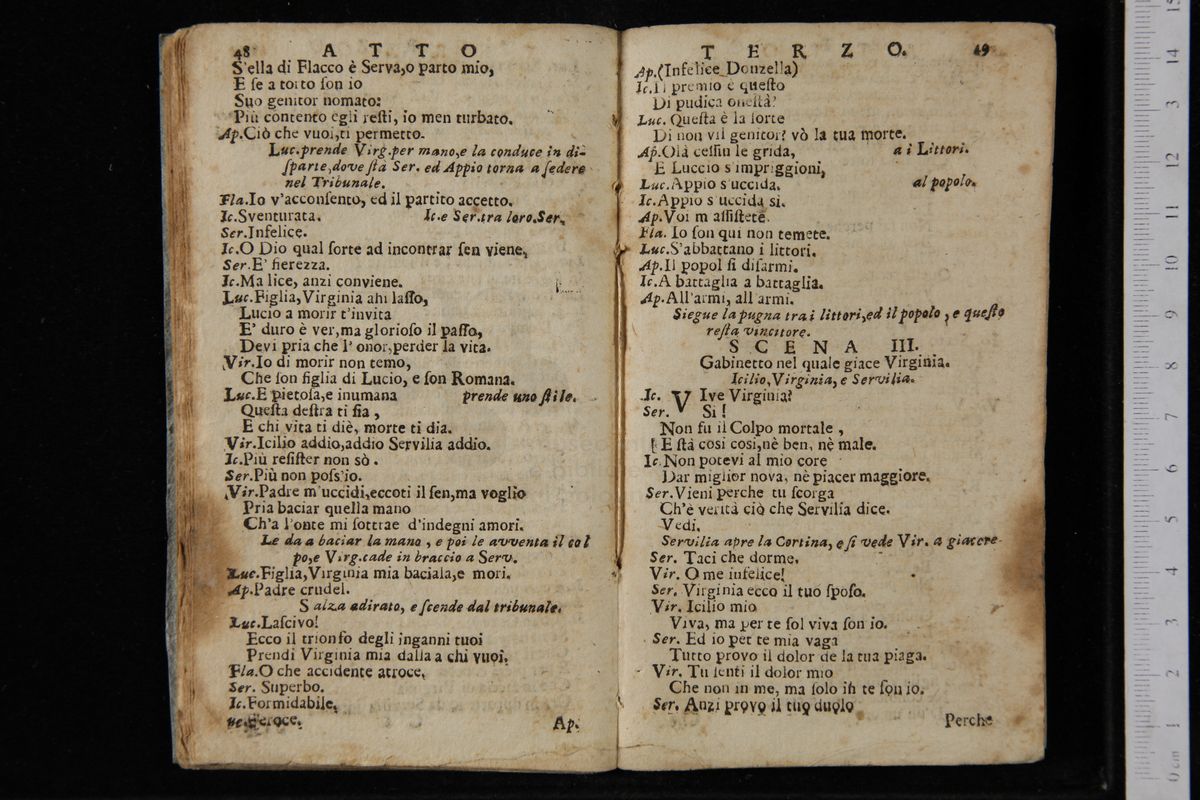 48 ATTO
S'ella di Flacco è Serva,o parto mio,
E ſe a torto ſon io
Suo genitor nomato:
Più contento egli reſti, io men turbato.
Ap.Ciò che vuoi,ti permetto.
Luc.prende Virg.per mano,e la conduce in di-
ſparte,dove ſtà Ser. ed Appio torna a ſedere
nel Tribunale.
Fla.Io v'acconſento, ed il partito accetto.
Ic.Sventurata. Ic.e Ser.tra loro.Ser.
Ser.Infelice.
Ic.O Dio qual ſorte ad incontrar ſen viene,
Ser.E' fierezza.
Ic.Ma lice, anzi conviene.
Luc.Figlia,Virginia ahi laſſo,
Lucio a morir t'invita
E' duro è ver,ma glorioſo il paſſo,
Devi pria che l' onor,perder la vita.
Vir.Io di morir non temo,
Che ſon figlia di Lucio, e ſon Romana.
Luc.E pietoſa,e inumana prende uno ſtile.
Queſta deſtra ti ſia ,
E chi vita ti diè, morte ti dia.
Vir.Icilio addio,addio Servilia addio.
Ic.Più reſiſter non sò .
Ser.Più non poſs'io.
Vir.Padre m'uccidi,eccoti il ſen,ma voglio
Pria baciar quella mano
Ch'a l'onte mi ſottrae d'indegni amori.
Le da a baciar la mano , e poi le avventa il col
po,e Virg.cade in braccio a Serv.
Luc.Figlia,Virginia mia baciala,e mori.
Ap.Padre crudel.
S alza adirato, e ſcende dal tribunale.
Luc.Laſcivo!
Ecco il trionfo degli inganni tuoi
Prendi Virginia mia dalla a chi vuoi.
Fla.O che accidente atroce,
Ser. Superbo.
Ic.Formidabile,
uc.Feroce.
Ap.
TERZO. 49
Ap.(Infelice Donzella)
Ic.Il premio è queſto
Di pudica oneſtà?
Luc. Queſta è la ſorte
Di non vil genitor? vò la tua morte.
Ap.Olà ceſſin le grida, a i Littori.
E Luccio s'impriggioni,
Luc.Appio s'uccida. al popolo.
Ic.Appio s'uccida si.
Ap.Voi m aſſiſtete.
Fla. Io ſon qui non temete.
Luc.S'abbattano i littori.
Ap.Il popol ſi diſarmi.
Ic.A battaglia a battaglia.
Ap.All'armi, all armi.
Siegue la pugna tra i littori,ed il popolo , e queſto
reſta vincitore.
SCENA III.
Gabinetto nel quale giace Virginia.
Icilio,Virginia, e Servilia.
Ic. VIve Virginia?
Ser. Si !
Non fu il Colpo mortale ,
E ſtà cosi cosi,nè ben, nè male.
Ic.Non potevi al mio core
Dar miglior nova, nè piacer maggiore.
Ser.Vieni perche tu ſcorga
Ch'è verità ciò che Servilia dice.
Vedi.
Servilia apre la Cortina, e ſi vede Vir. a giacere
Ser. Taci che dorme.
Vir. O me infelice!
Ser. Virginia ecco il tuo ſpoſo.
Vir. Icilio mio
Viva, ma per te ſol viva ſon io.
Ser. Ed io per te mia vaga
Tutto provo il dolor de la tua piaga.
Vir. Tu ſenti il dolor mio
Che non in me, ma ſolo in te ſon io.
Ser. Anzi provo il tuo duolo
Perche